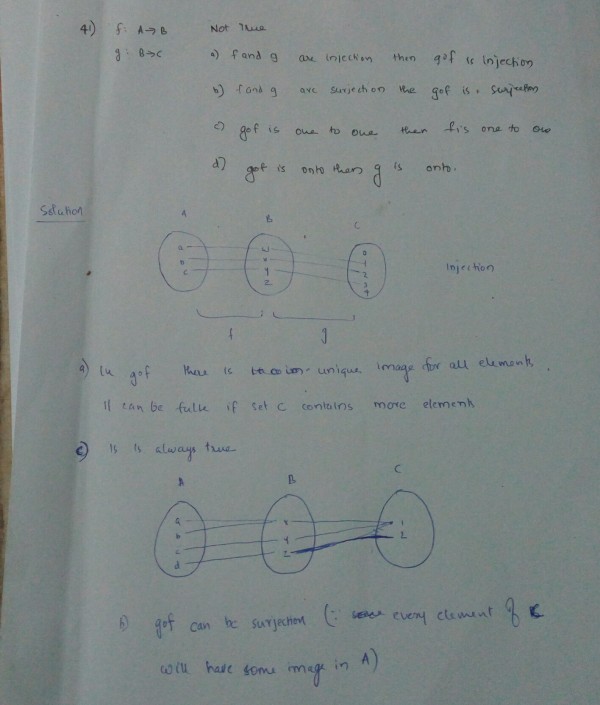 41) f: A→B Not True
g: B→C a) f and g are injection then gof is injection
b) f and g are surjection the gof is surjection
c) gof is one to one then f is one to one
d) gof is onto then g is onto.
Solution
A B C
a w 0
b x 1
c y 2
z 3
4
Injection
f g
a) In gof there is unique image for all element.
It can be false if set C contains more element
c) Is is always true
A B C
a x 1
b y 2
c z
d
b) gof can be surjection (∵ every element of C
will have some image in A)